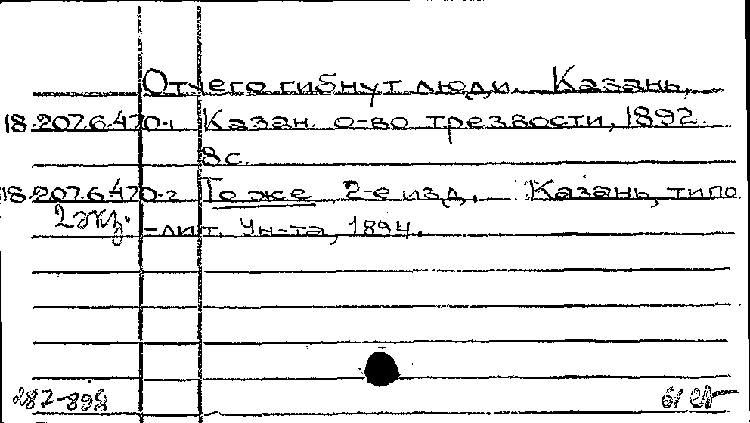 Отчего гибнут люди. Казань,
18.207.6.470-1 Казан. о-во трезвости, 1892.
8 с.
18.207.6.470-2 То же 2-е изд. Казань, типо
2 экз. -лит. Ун-та, 1894.
287-892